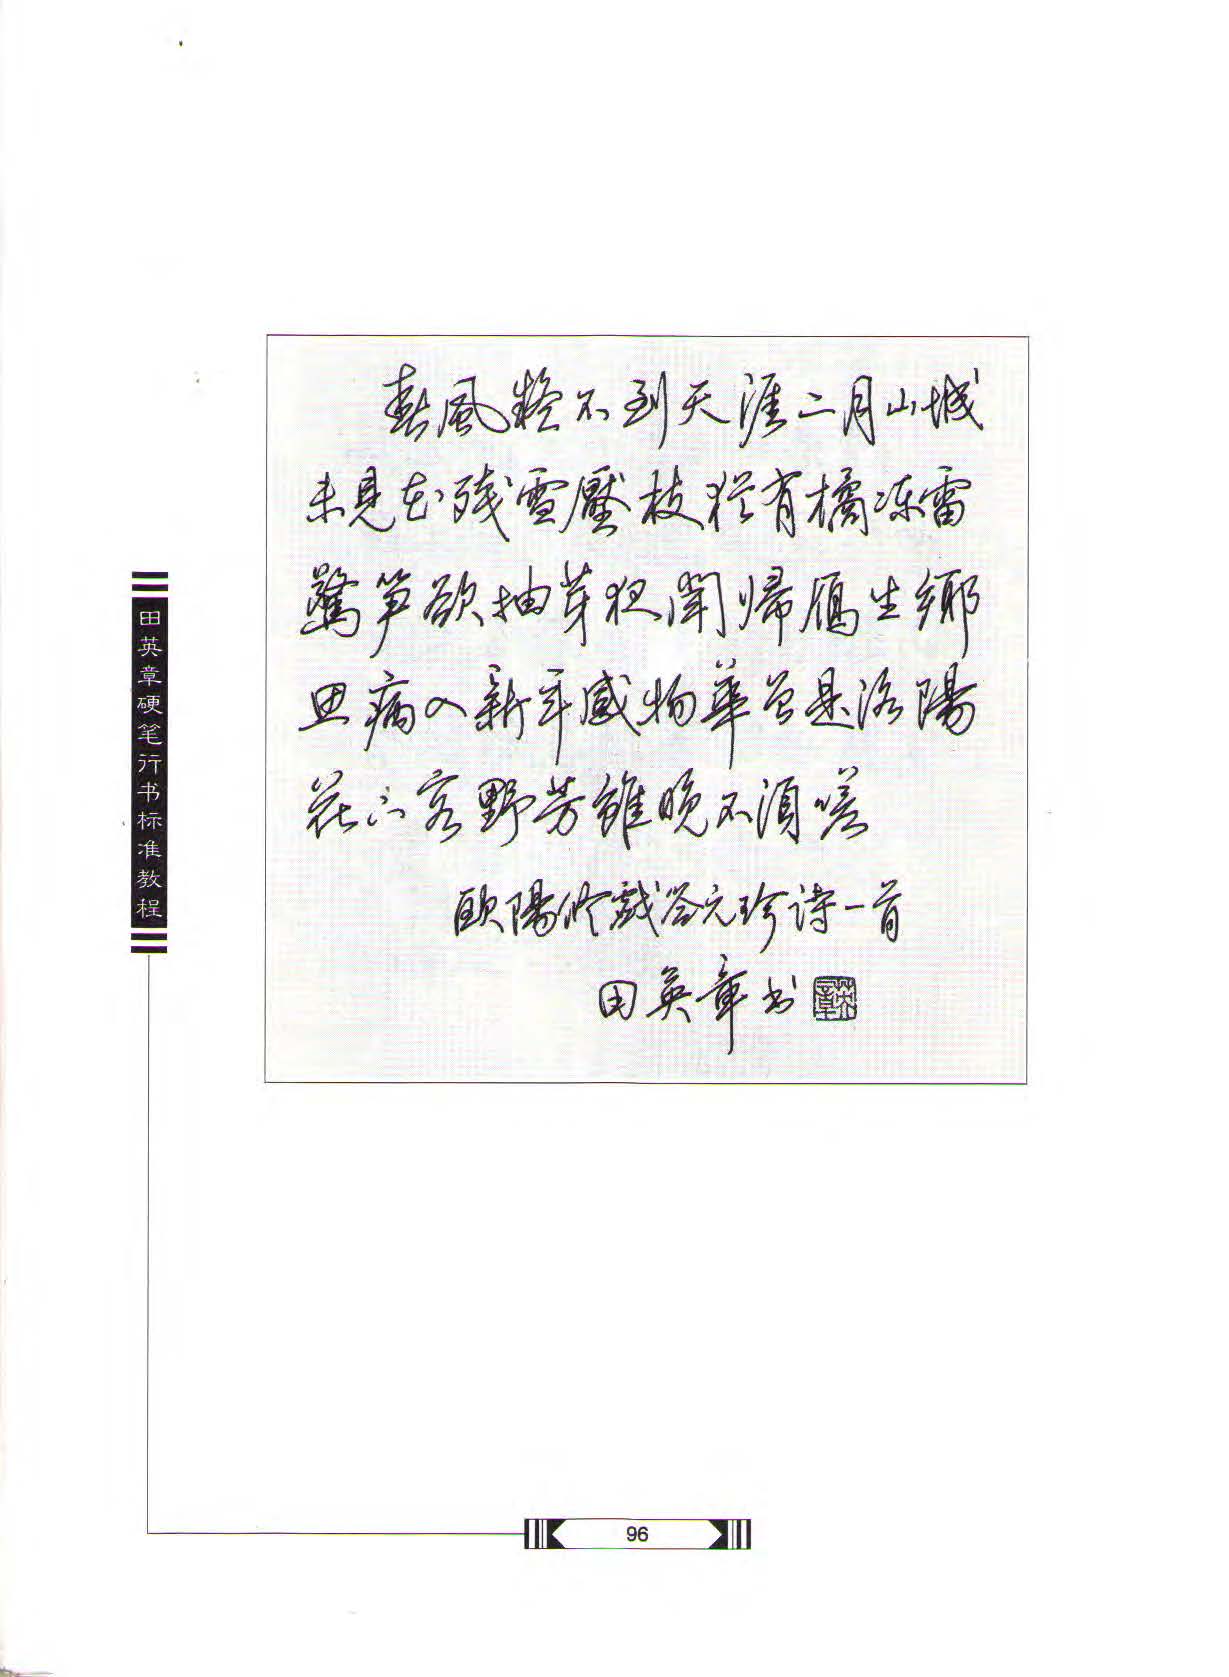 春風疑不到天涯二月山城
未見花残雪壓枝猶有橘冻雷
驚笋欲抽芽夜聞歸雁生鄉
思病入新年感物華曾是洛陽
花下客野芳雖晚不須嗟
歐陽修戲答元珍诗一首
田英章书
英章
田英章硬笔行书标准教程
96